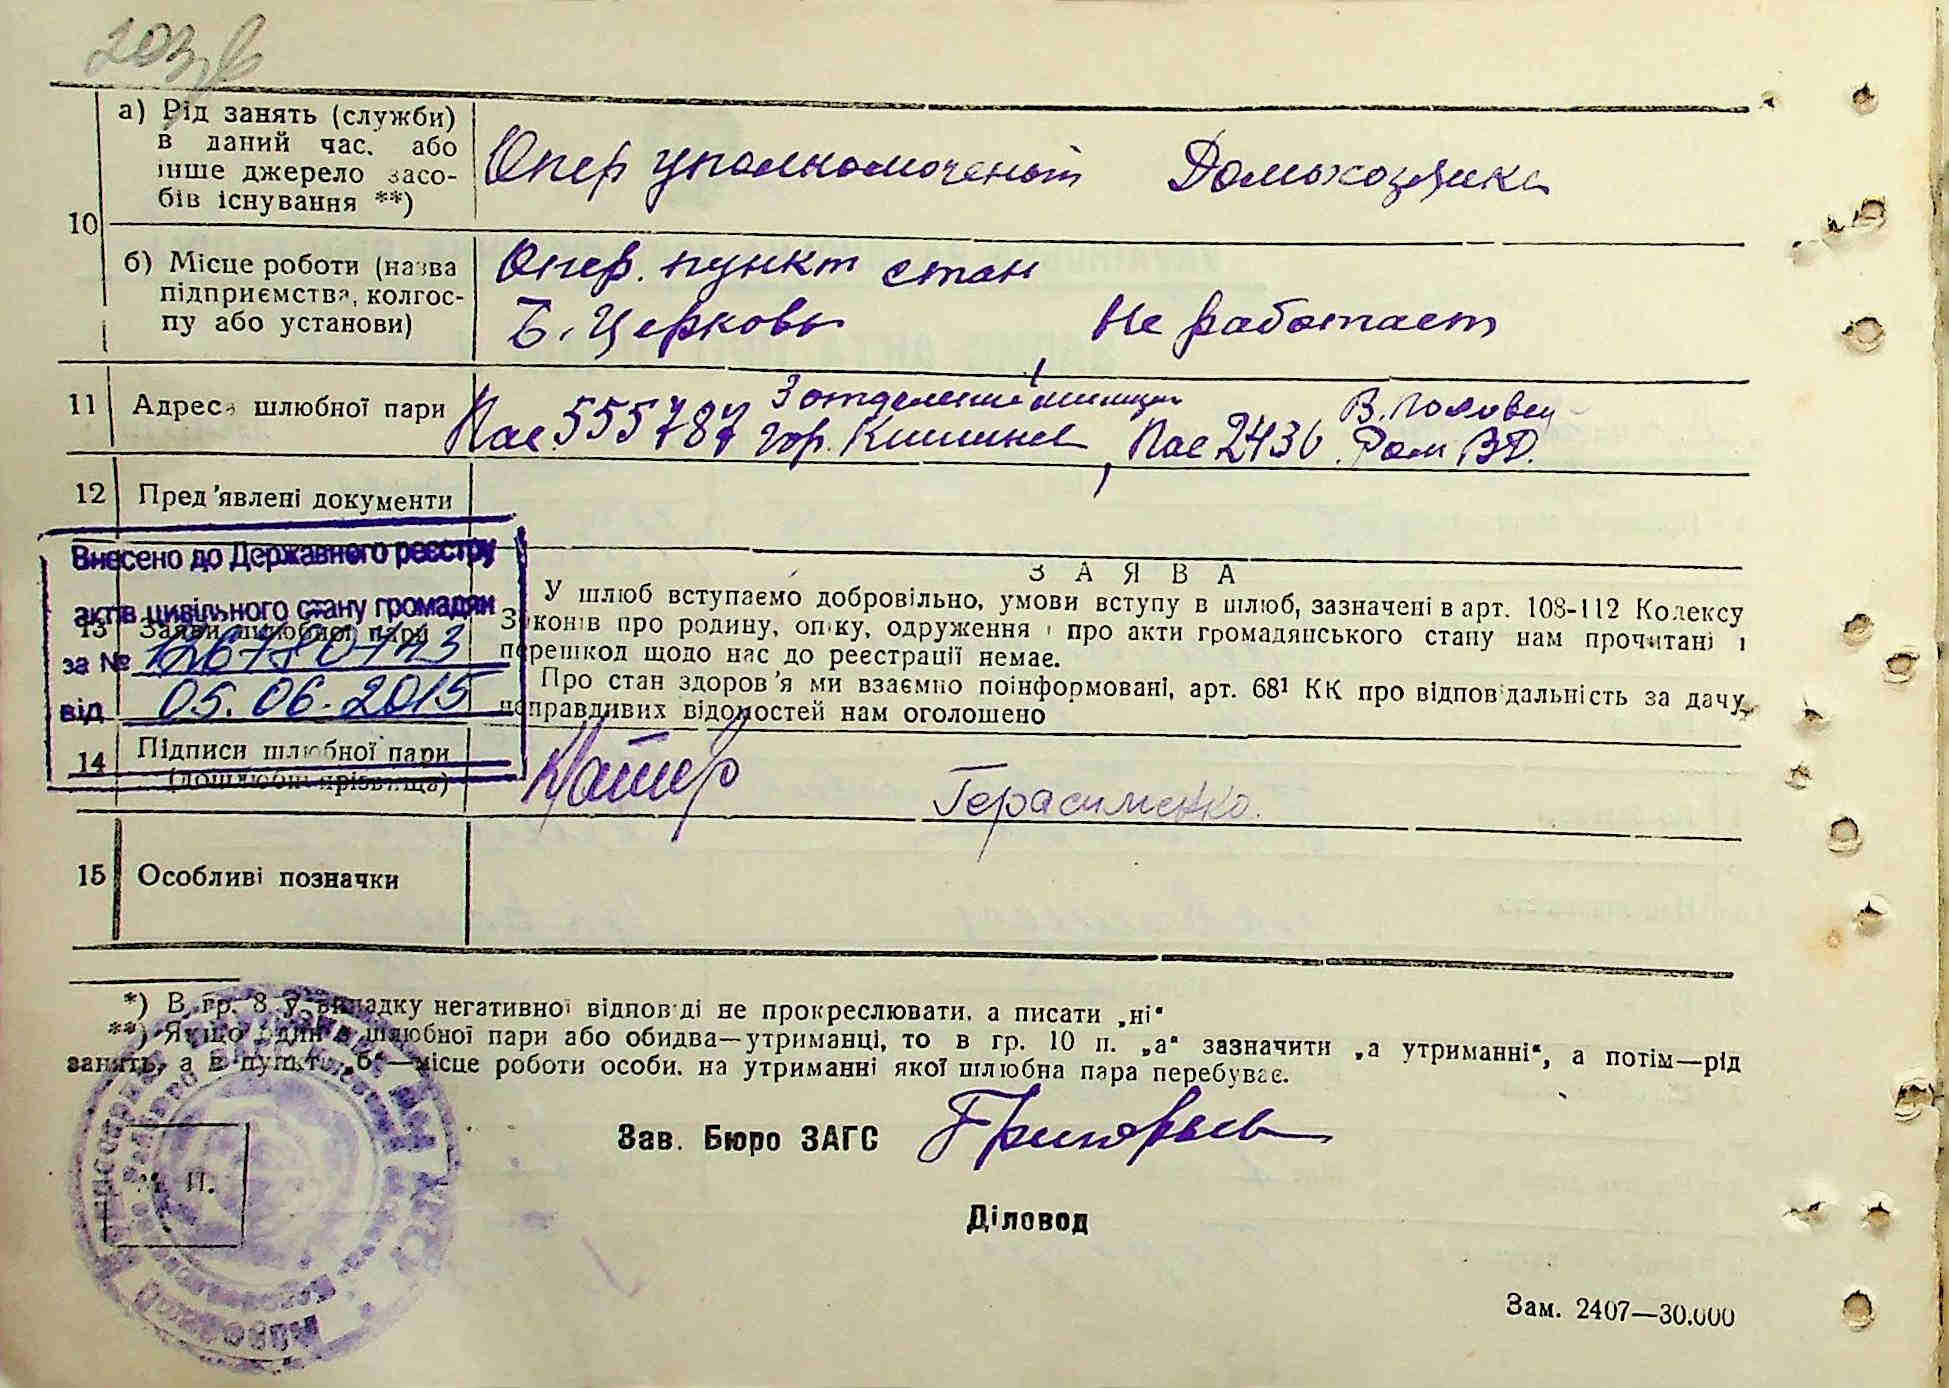 203
а) Рід занять (служби) в даний час. або інше джерело засобів існування **)
Опер уполномоченый Домохозяйка
10
б) Місце роботи (назва підприємства, колгоспу або установи)
Опер. пункт стан
Б. Церковь Не работает
11 Адреса шлюбної пари
3 отделение милиции
Пас. 555787 гор. Кишинев, Пас 2430 Рай ВД.
12 Пред'явлені документи
Внесено до Державного реєстру
актів цивільного стану громадян
за №
від 05.06.2015
З А Я В А
13 Заяви шлюбної пари
У шлюб вступаємо добровільно, умови вступу в шлюб, зазначені в арт. 108-112 Кодексу
Законів про родину, опіку, одруження і про акти громадянського стану нам прочитані і
перешкод щодо нас до реєстрації немає.
Про стан здоров'я ми взаємно поінформовані, арт. 68¹ КК про відповідальність за дачу
неправдивих відомостей нам оголошено
14 Підписи шлюбної пари
(дошлюбні прізвища)
Герасименко.
15 Особливі позначки
*) В гр. 8 у випадку негативної відповіді не прокреслювати, а писати „ні“
**) Якщо один з шлюбної пари або обидва—утриманці, то в гр. 10 п. „а“ зазначити „а утриманні“, а потім—рід
занять, а в пункті „б“—місце роботи особи. на утриманні якої шлюбна пара перебуває.
Зав. Бюро ЗАГС
М. П.
Діловод
Зам. 2407—30.000